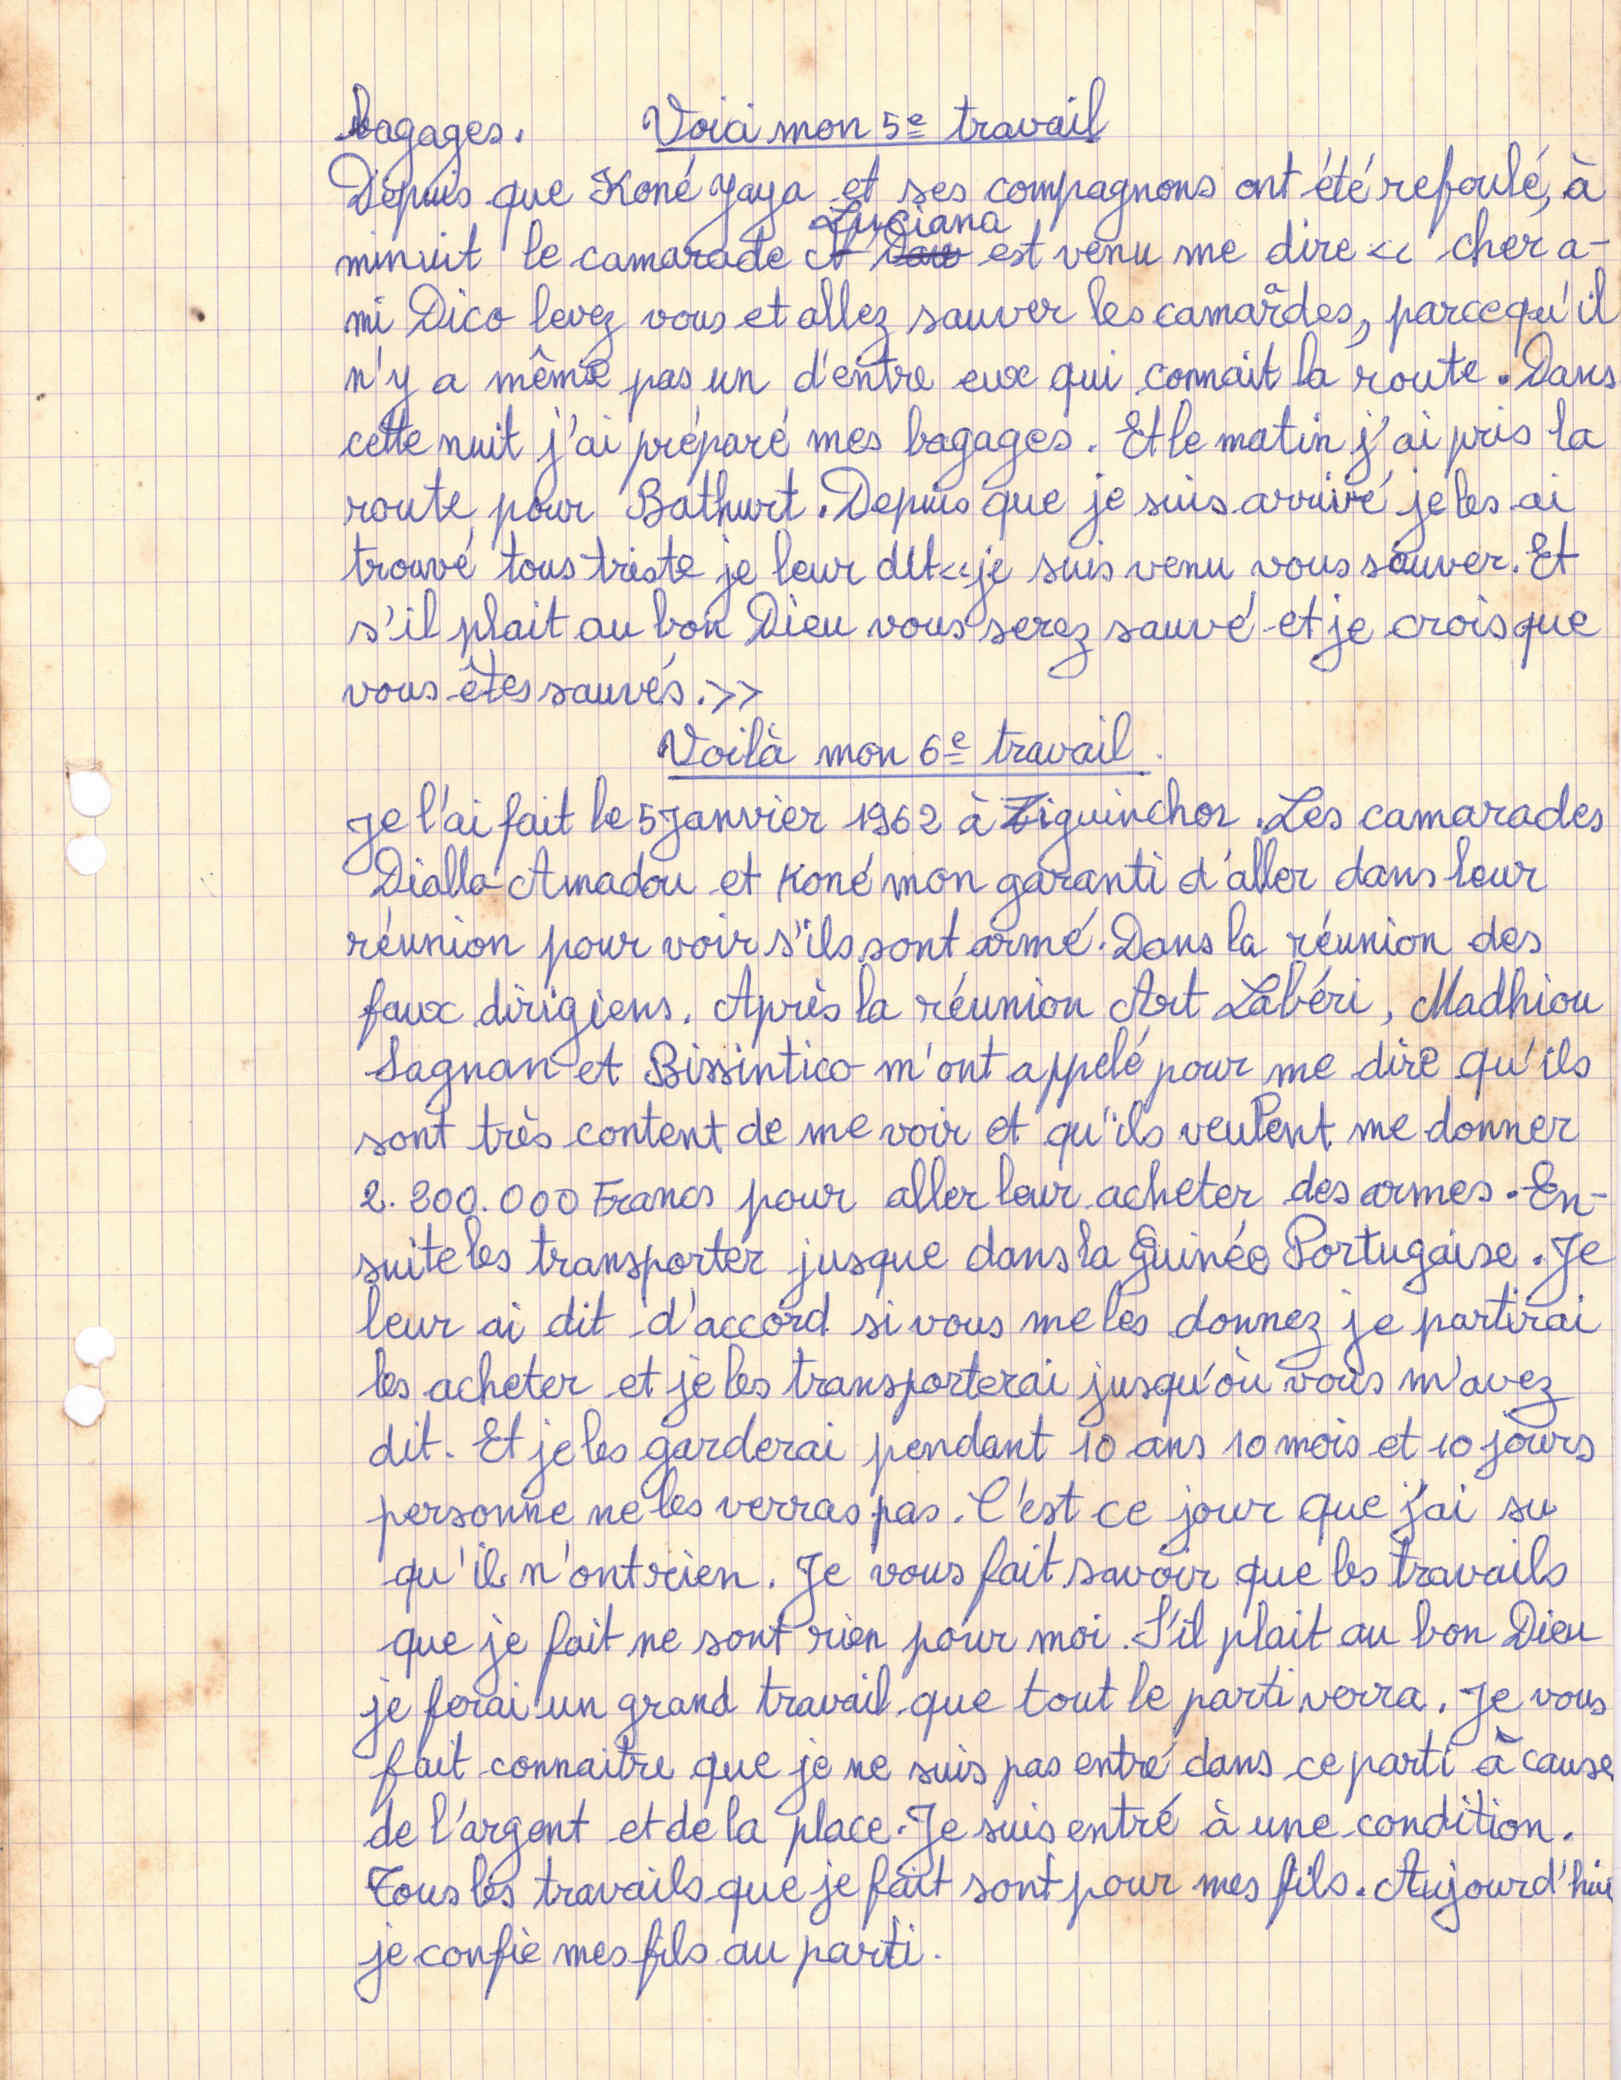 bagages. Voici mon 5e travail
Depuis que Koné Yaya et ses compagnons ont été refoulé, à
Luciana
minuit le camarade est venu me dire << cher a-
mi Dico levez vous et allez sauver les camardes, parcequ'il
n'y a même pas un d'entre eux qui connait la route. Dans
cette nuit j'ai préparé mes bagages. Et le matin j'ai pris la
route pour Bathurt. Depuis que je suis arrivé je les ai
trouvé tous triste je leur dit << je suis venu vous sauver. Et
s'il plait au bon Dieu vous serez sauvé et je crois que
vous êtes sauvés. >>
Voilà mon 6e travail.
Je l'ai fait le 5 Janvier 1962 à Ziguinchor. Les camarades
Diallo Amadou et Koné mon garanti d'aller dans leur
réunion pour voir s'ils sont armé. Dans la réunion des
faux dirigiens. Après la réunion Art Labéri, Madhiou
Sagnan et Bissintico m'ont appelé pour me dire qu'ils
sont très content de me voir et qu'ils veulent me donner
2.200.000 Francs pour aller leur acheter des armes. En-
suite les transporter jusque dans la Guinée Portugaise. Je
leur ai dit d'accord si vous me les donnez je partirai
les acheter et je les transporterai jusqu'où vous m'avez
dit. Et je les garderai pendant 10 ans 10 mois et 10 jours
personne ne les verras pas. C'est ce jour que j'ai su
qu'ils n'ont rien. Je vous fait savoir que les travails
que je fait ne sont rien pour moi. S'il plait au bon Dieu
je ferai un grand travail que tout le parti verra. Je vous
fait connaitre que je ne suis pas entré dans ce parti à cause
de l'argent et de la place. Je suis entré à une condition.
Tous les travails que je fait sont pour mes fils. Aujourd'hui
je confie mes fils au parti.